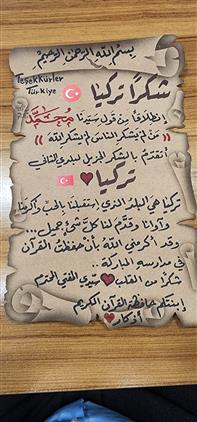 بسم الله الرحمن الرحيم
Teşekkürler
Türkiye
شكراً تركيا
إنطلاقاً من قول سيدنا محمد
(( من لم يشكر الناس لم يشكر الله ))
أتقدم بالشكر الجزيل لبلدي الثاني
تركيا
تركيا هي البلد الذي إستقبلنا بالحب وأكرمنا
وآوانا وقدّم لنا كلَّ شيءٍ جميل...
وقد أكرمني اللهُ بأن حفظتُ القرآن
في مدارسه المباركة..
شكراً من القلب سيدي المفتي المحترم
إبنتكم حافظة القرآن الكريم